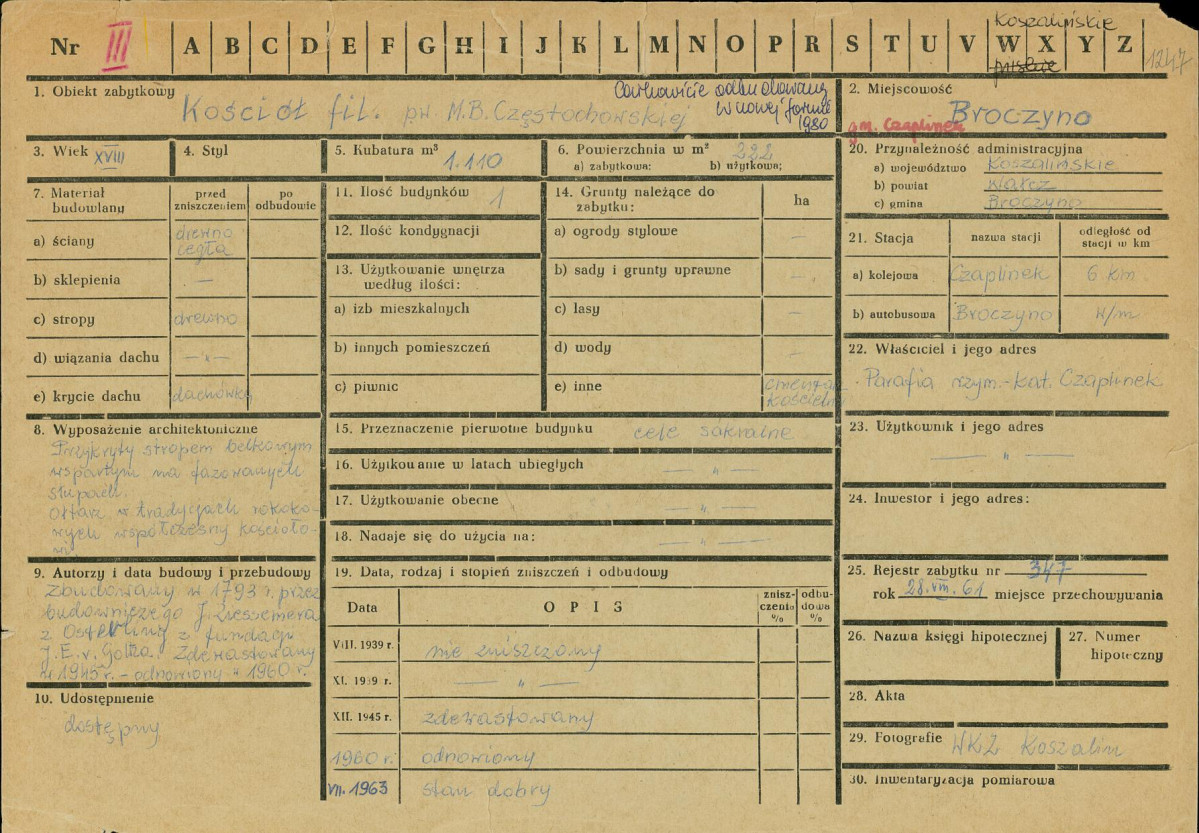 Koszalińskie
Nr III A B C D E F G H I J K L M N O P R S T U V W X Y Z
1247
1. Obiekt zabytkowy
Kościół fil. pw. M.B. Częstochowskiej
Całkowicie odbudowany
w nowej formie
1980
2. Miejscowość
Broczyno
gm. Czaplinek
3. Wiek XVIII
4. Styl
5. Kubatura m³
1.110
6. Powierzchnia w m² 222
a) zabytkowa: b) użytkowa;
20. Przynależność administracyjna
a) województwo Koszalińskie
b) powiat Wałcz
c) gmina Broczyno
7. Materiał budowlany
przed zniszczeniem
po odbudowie
a) ściany drewno cegła
b) sklepienia —
c) stropy drewno
d) wiązania dachu —"—
e) krycie dachu dachówka
11. Ilość budynków 1
12. Ilość kondygnacji
13. Użytkowanie wnętrza
według ilości:
a) izb mieszkalnych
b) innych pomieszczeń
c) piwnic
14. Grunty należące do
zabytku:
ha
a) ogrody stylowe —
b) sady i grunty uprawne —
c) lasy —
d) wody —
e) inne cmentarz kościelny
21. Stacja
nazwa stacji
odległość od
stacji w km
a) kolejowa Czaplinek 6 km
b) autobusowa Broczyno w/m
22. Właściciel i jego adres
Parafia rzym.-kat. Czaplinek
8. Wyposażenie architektoniczne
Przykryty stropem belkowym
wspartym na fazowanych
słupach.
Ołtarz w tradycjach rokoko-
wych współczesny kościoło-
wi.
15. Przeznaczenie pierwotne budynku cele sakralne
16. Użytkowanie w latach ubiegłych — " —
17. Użytkowanie obecne — " —
18. Nadaje się do użycia na: — " —
23. Użytkownik i jego adres
— " —
24. Inwestor i jego adres:
9. Autorzy i data budowy i przebudowy
Zbudowany w 1793 r. przez
budowniczego J.
z z fundacji
J.E. v. Goltza. Zdewastowany
w 1945 r. - odnowiony w 1960 r.
10. Udostępnienie
dostępny
19. Data, rodzaj i stopień zniszczeń i odbudowy
Data
O P I S
znisz-
czenia
%
odbu-
dowa
%
VIII. 1939 r. nie zniszczony
XI. 1939 r. — " —
XII. 1945 r. zdewastowany
1960 r. odnowiony
VII. 1963 stan dobry
25. Rejestr zabytku nr 347
rok 28.VIII.61 miejsce przechowywania
26. Nazwa księgi hipotecznej
27. Numer
hipoteczny
28. Akta
29. Fotografie WKZ Koszalin
30. Inwentaryzacja pomiarowa